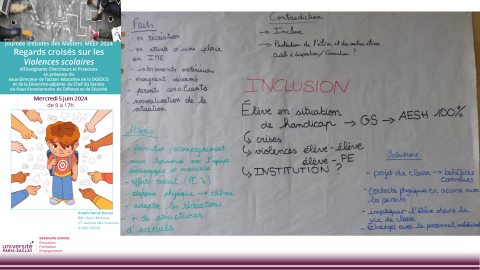 Journée d'études des Masters MEEF 2024
Regards croisés sur les
Violences scolaires
d'Enseignants Chercheurs et Praticiens
en présence du
sous-Directeur de l'action éducative de la DGESCO
et de la Directrice-adjointe du Chef du Service
du Haut-Fonctionnaire de Défense et de Sécurité
Mercredi 5 juin 2024
de 9 à 17h
Amphi Hervé Daniel
91400 ORSAY
université
PARIS-SACLAY
GRADUATE SCHOOL
Education
Formation
Enseignement
Faits
- en récréation
- en attente d'une place
en IME
- intervenants extérieurs
- enseignant
- parents
- normalisation de la
situation
Contradiction
-> Inclure
-> Protection de l'élève et des autres élèves
INCLUSION
Élève en situation
de handicap -> GS -> AESH 100%
crises
violences élève-élève
élève - PE
INSTITUTION ?
- formation / accompagnement
pédagogique et médicale
- effort social (PE's)
- défense physique -> calme
- adapter la récréation
+ de structures
d'accueils
Solutions
- projet de classe -> bénéfices
communs
- Contacts physiques en accord avec
les parents
- impliquer l'élève dans la
vie de classe
- Échanges avec le personnel médical